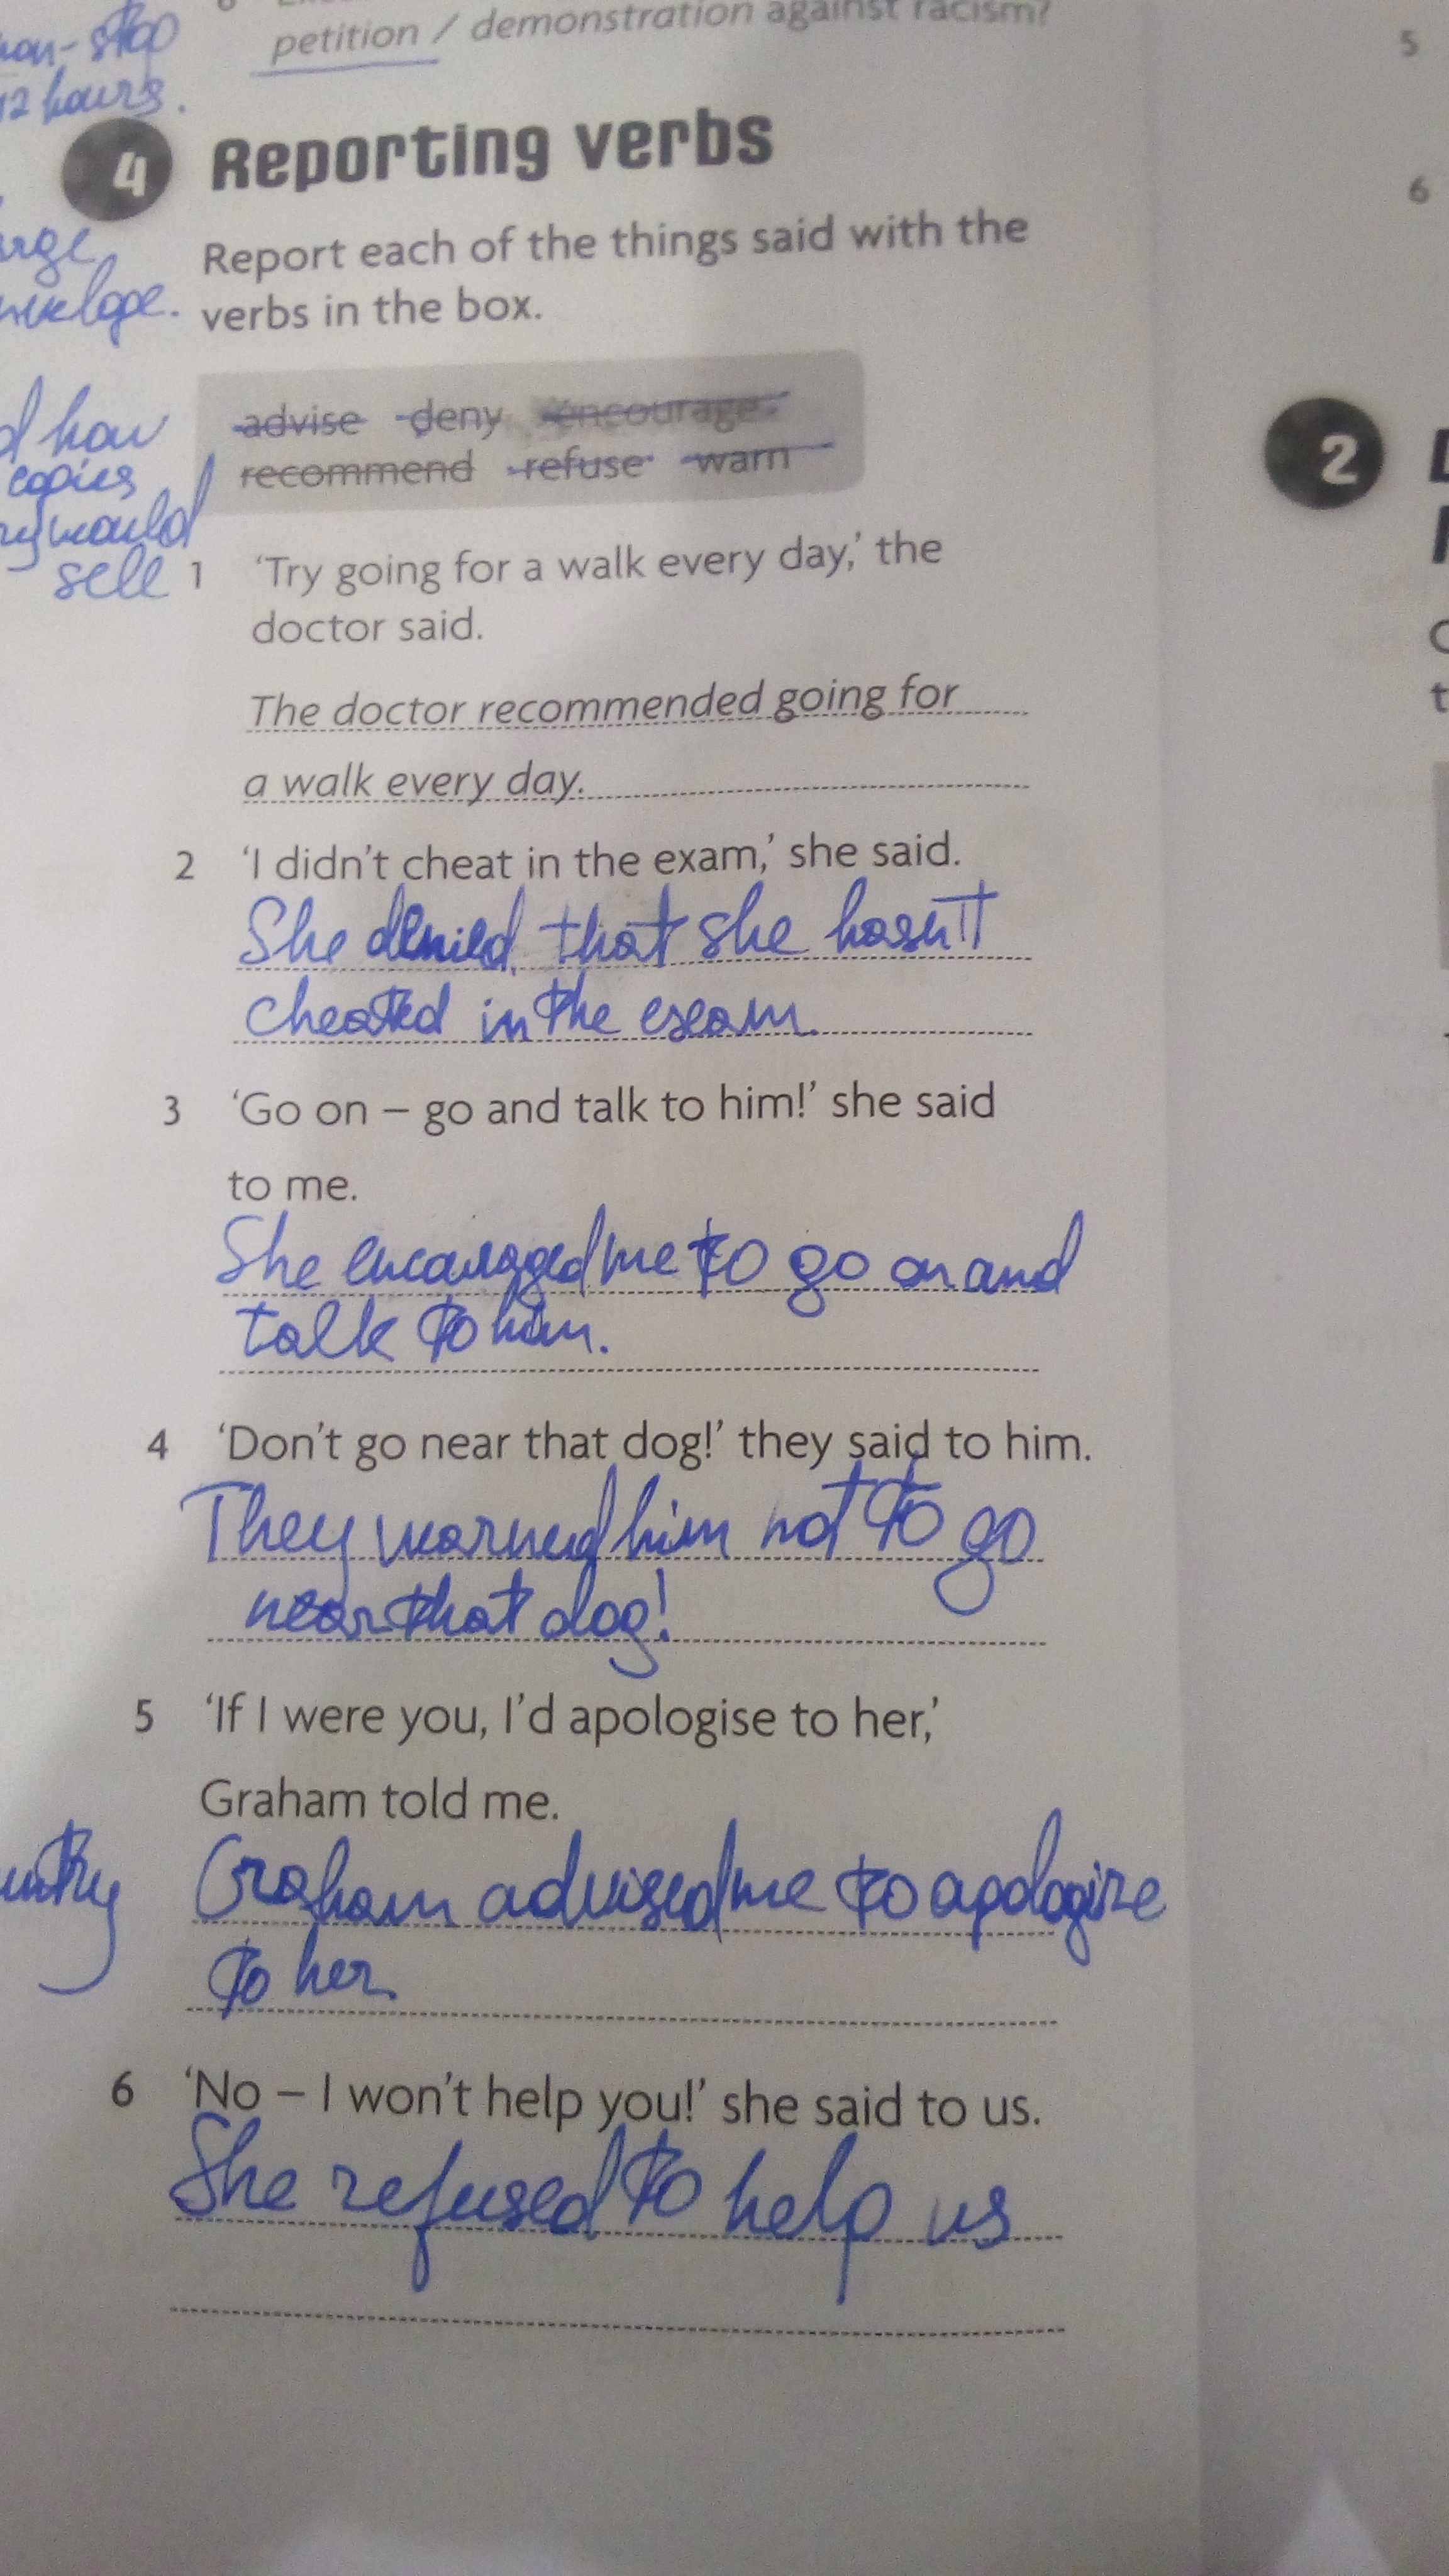 non-stop
12 hours.
petition / demonstration against racism?
4 Reporting verbs
Report each of the things said with the
verbs in the box.
advise deny encourage
recommend refuse warn
how
copies
would
sell
1 ‘Try going for a walk every day,’ the
doctor said.
The doctor recommended going for
a walk every day.
2 ‘I didn’t cheat in the exam,’ she said.
She denied that she hasn't
cheated in the exam.
3 ‘Go on – go and talk to him!’ she said
to me.
She encouraged me to go on and
talk to him.
4 ‘Don’t go near that dog!’ they said to him.
They warned him not to go
near that dog!
5 ‘If I were you, I’d apologise to her,’
Graham told me.
Graham advised me to apologize
to her.
6 ‘No – I won’t help you!’ she said to us.
She refused to help us
5
6
2